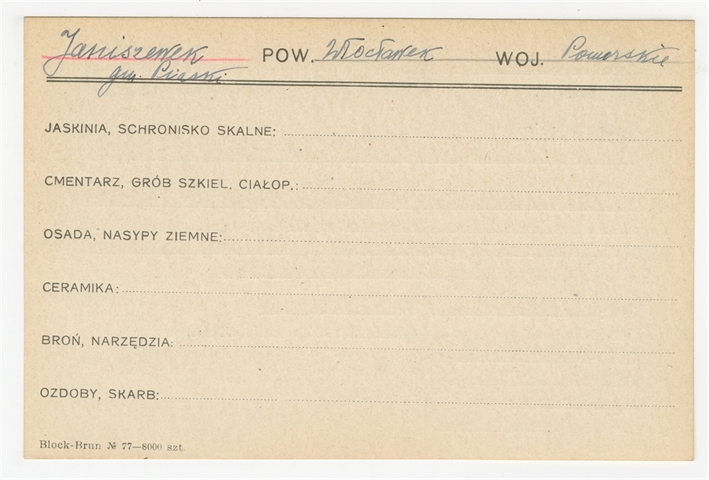 Janiszewek POW. Włocławek WOJ. Pomorskie
gm. Piaski
JASKINIA, SCHRONISKO SKALNE:
CMENTARZ, GRÓB SZKIEL. CIAŁOP.:
OSADA, NASYPY ZIEMNE:
CERAMIKA:
BROŃ, NARZĘDZIA:
OZDOBY, SKARB:
Block-Brun № 77—8000 szt.